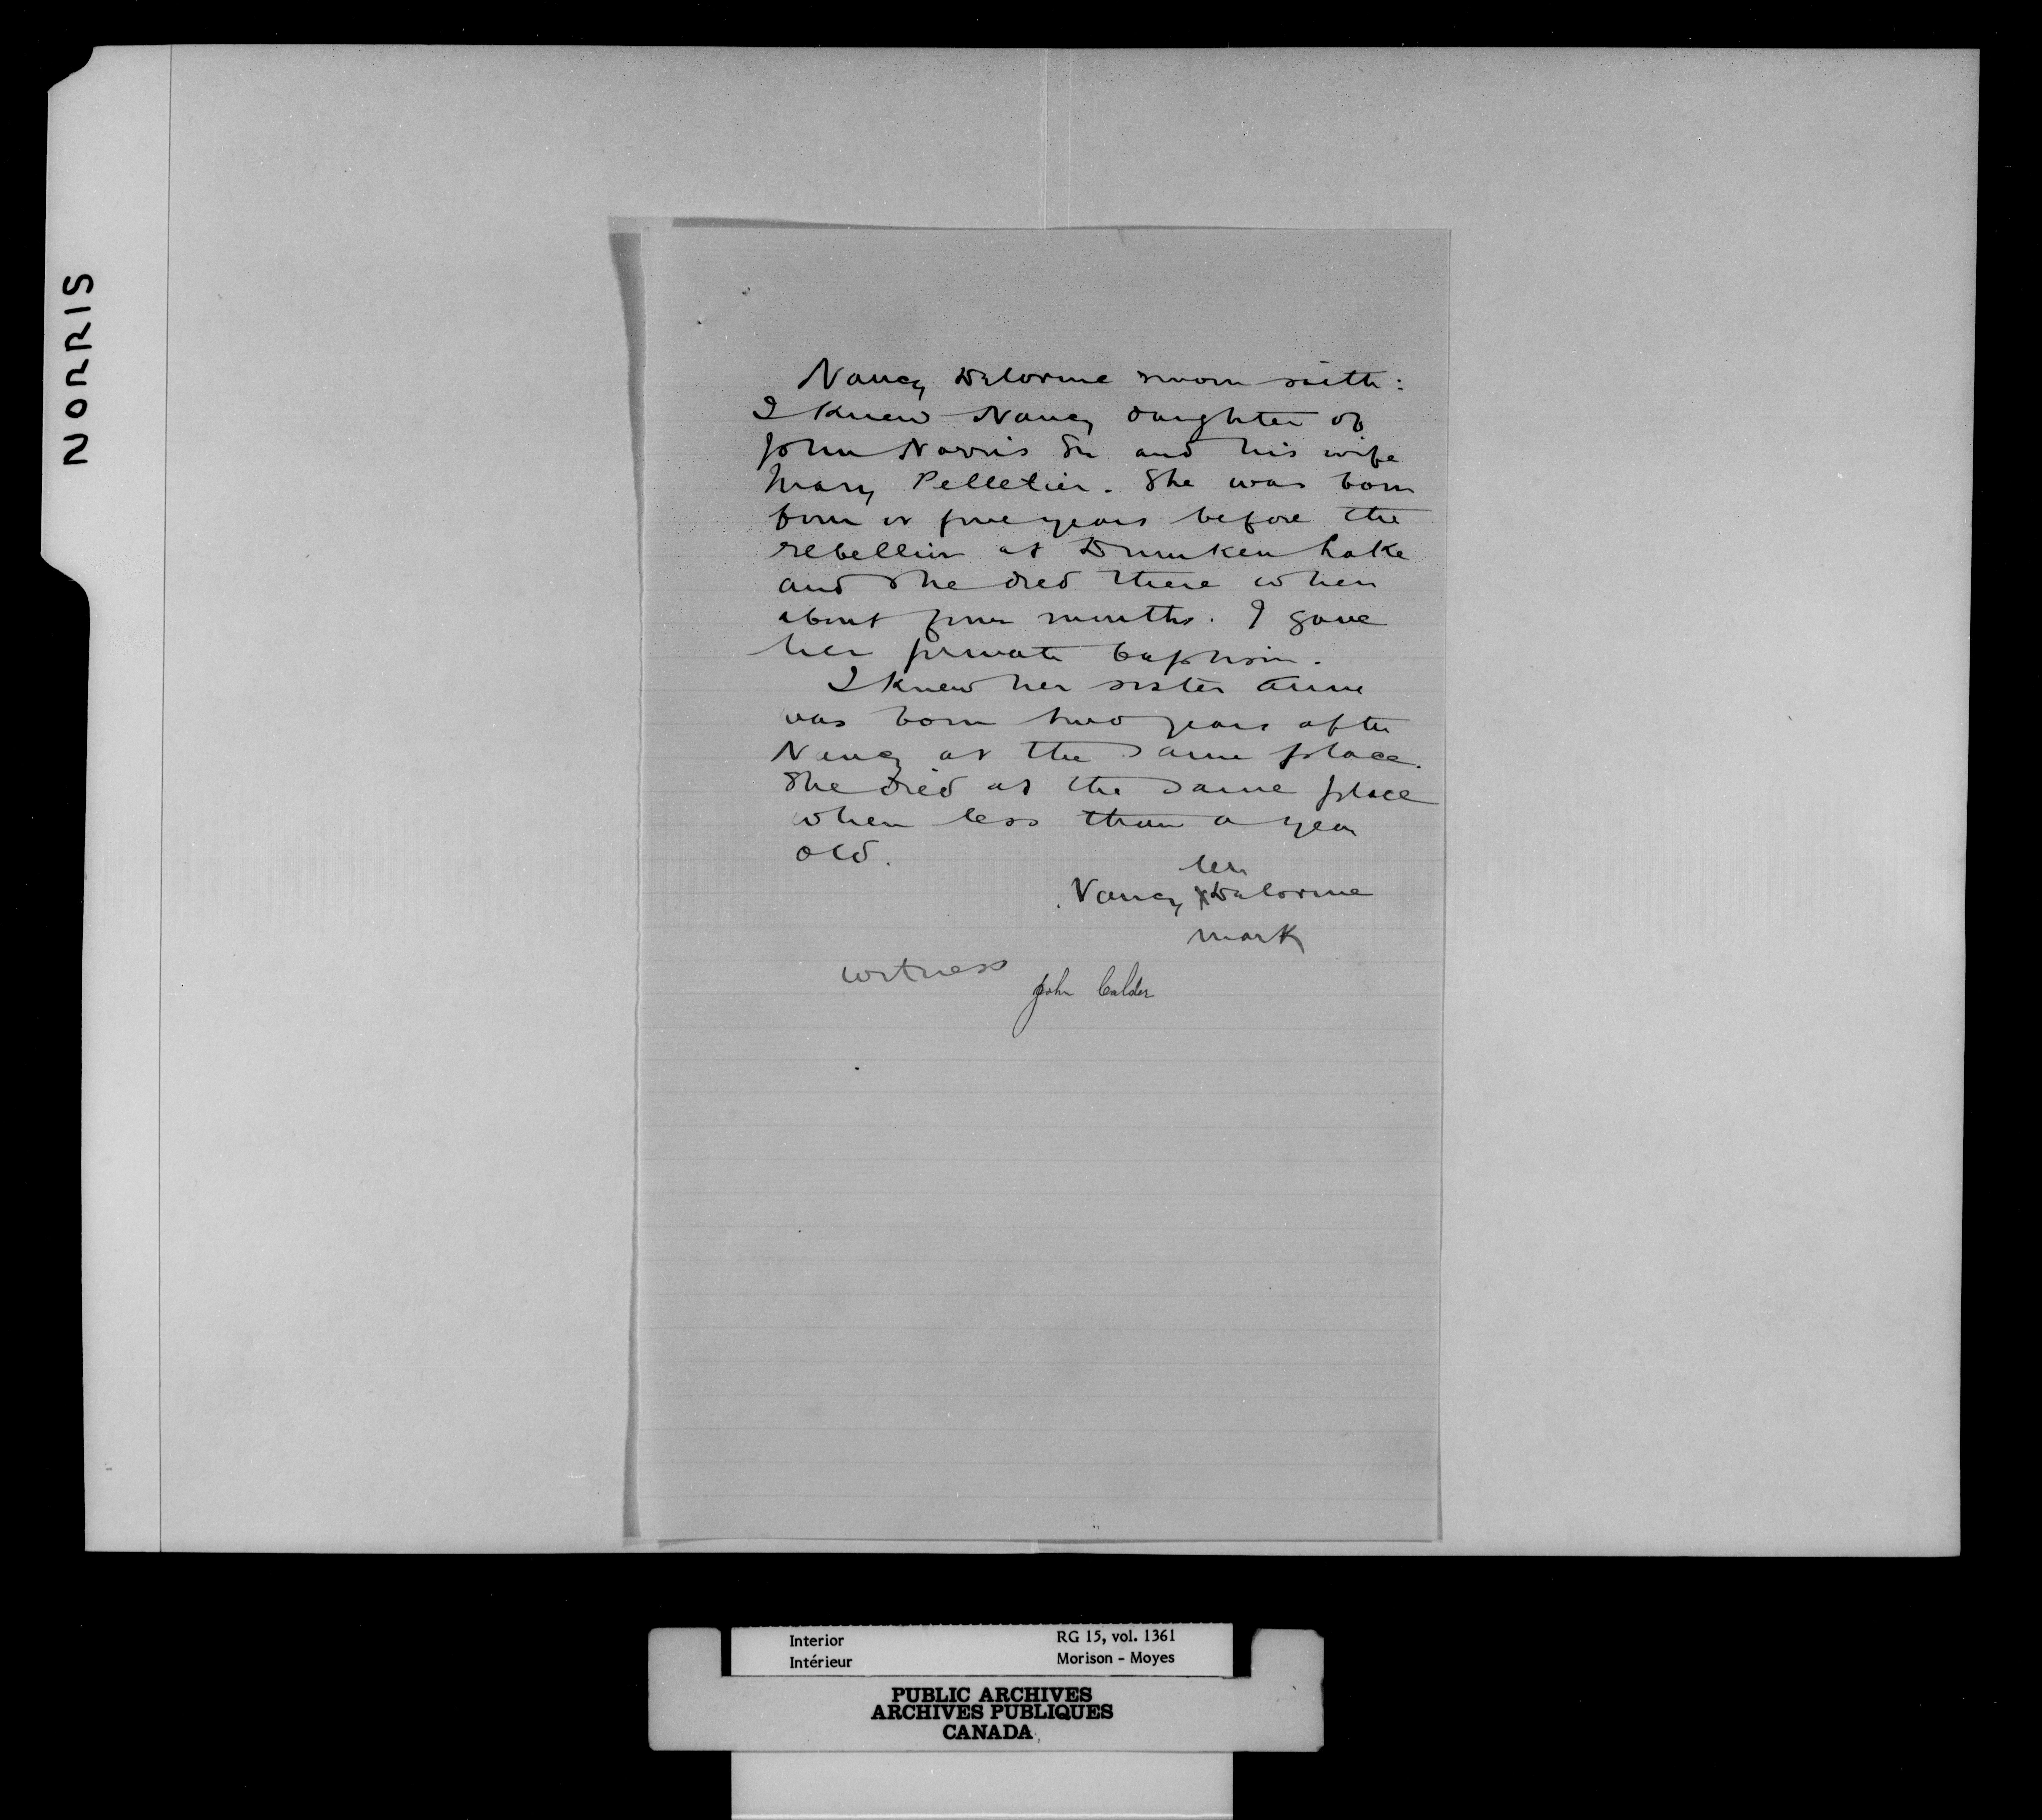 NORRIS
Nancy Delorme sworn saith:
I knew Nancy daughter of
John Norris Sr and his wife
Mary Pelletier. She was born
four or five years before the
rebellion at Drunken Lake
and she died there when
about four months. I gave
her private baptism.
I knew her sister Anne
was born two years after
Nancy at the same place.
She died at the same place
when less than a year
old.
her
Nancy X Delorme
mark
witness
John Calder
Interior RG 15, vol. 1361
Intérieur Morison - Moyes
PUBLIC ARCHIVES
ARCHIVES PUBLIQUES
CANADA